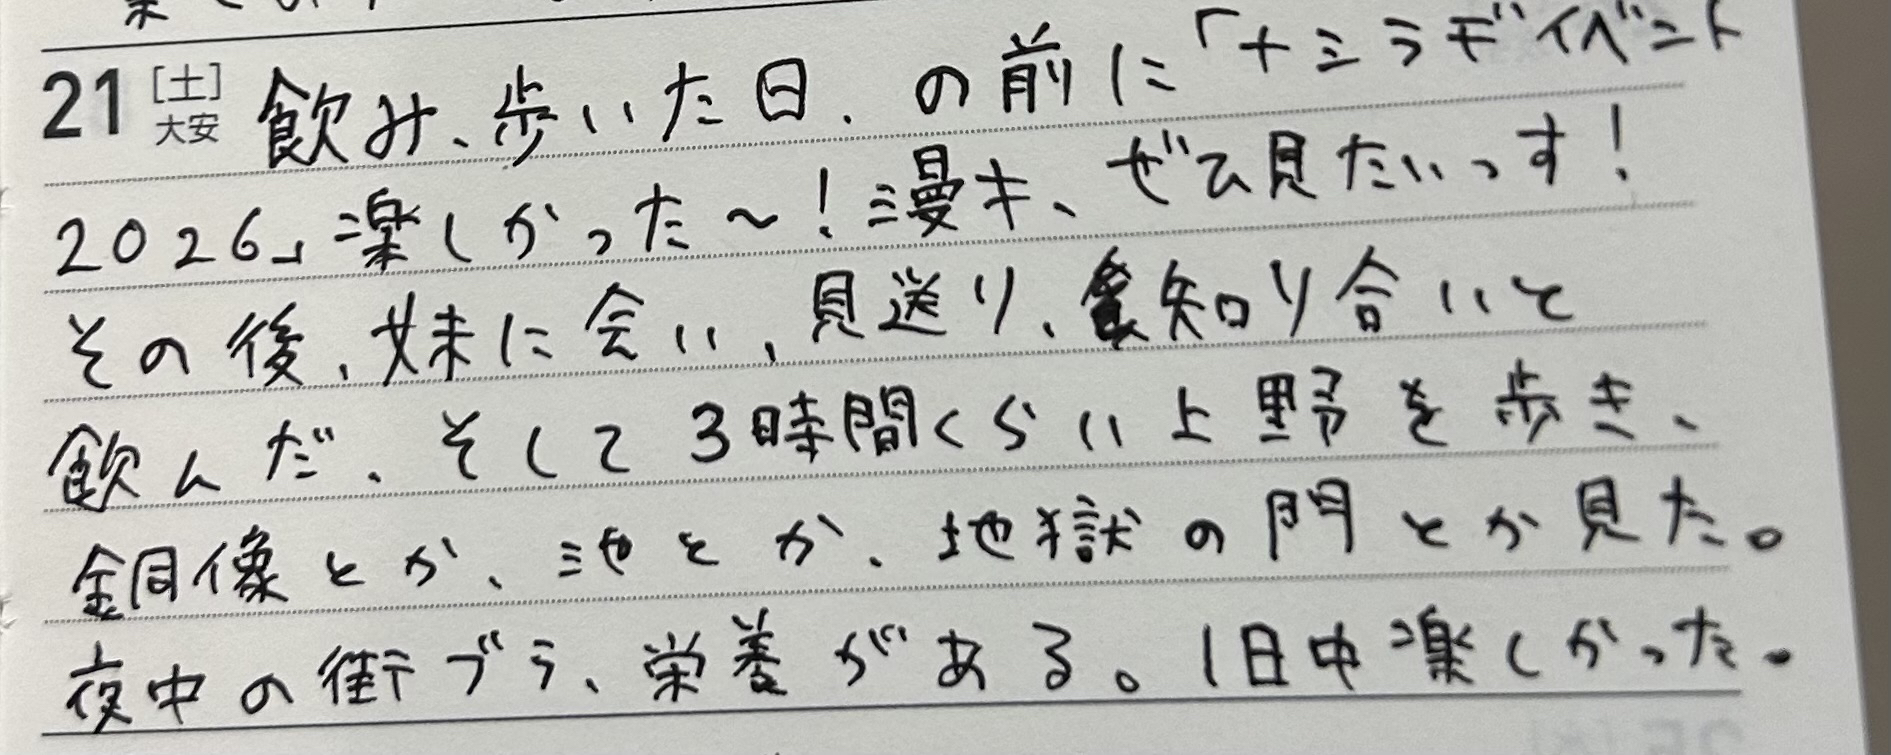 21 [土] 大安 飲み、歩いた日、の前に「ナミラギイベント
2026」楽しかった〜!漫才、ぜひ見たいっす!
その後、妹に会い、見送り、知り合いと
飲んだ、そして3時間くらい上野を歩き、
銅像とか、池とか、地獄の門とか見た。
夜中の街ブラ、栄養がある。1日中楽しかった。